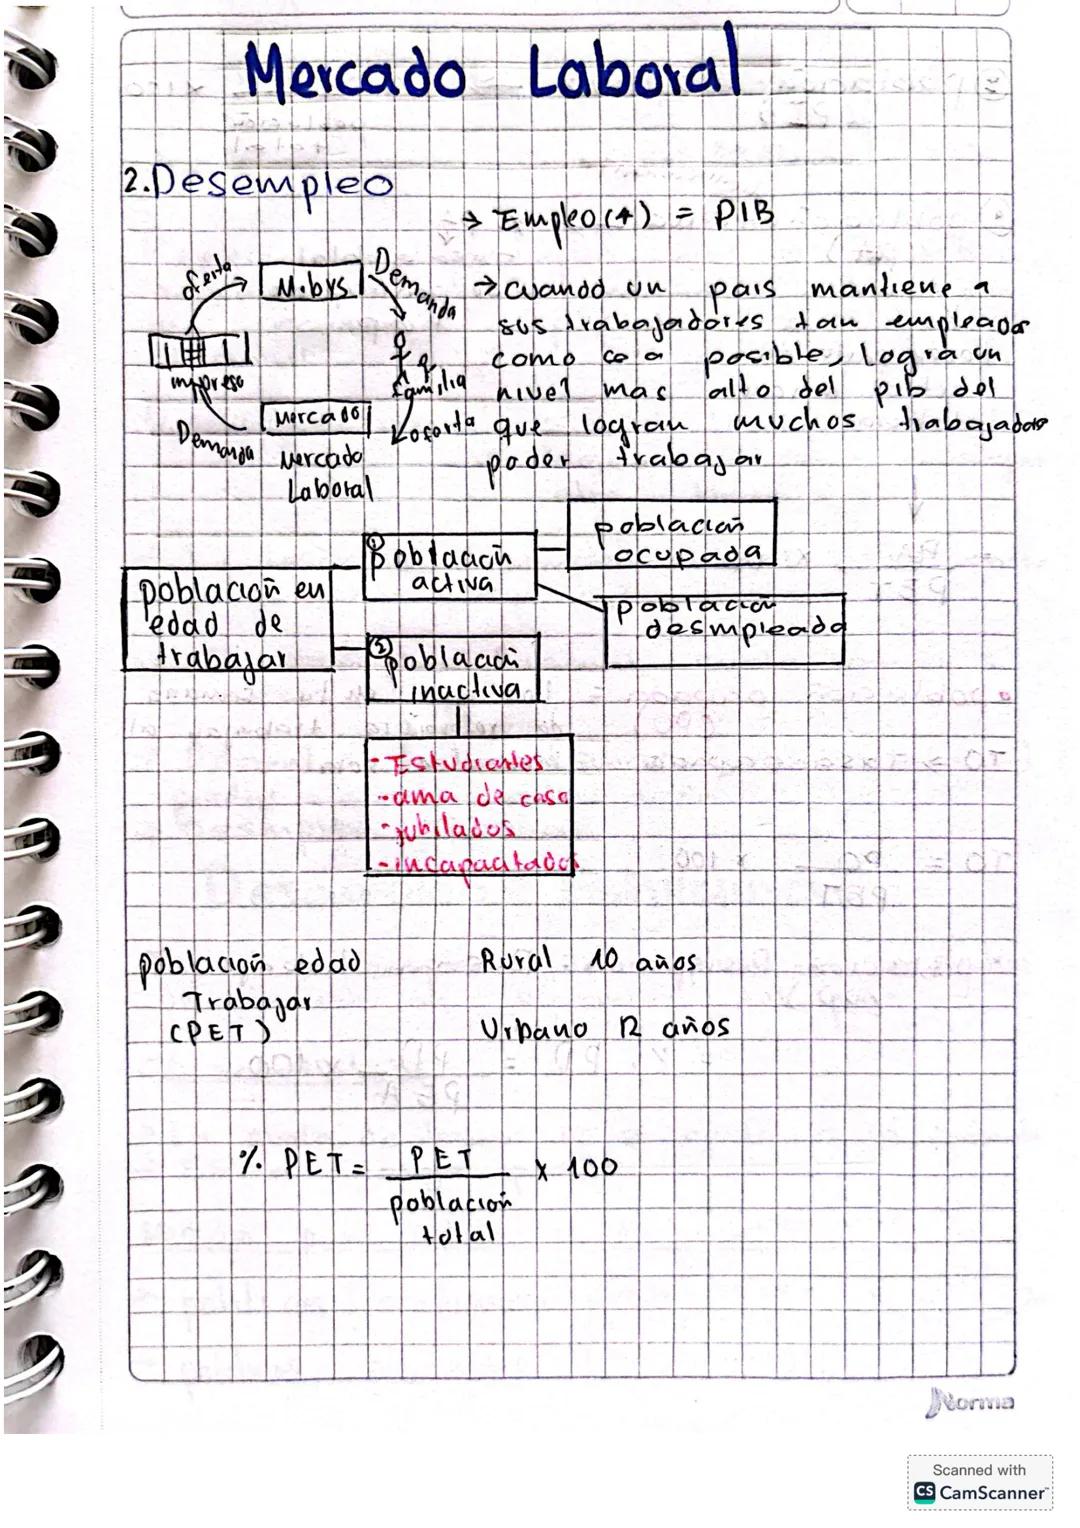 Mercado Laboral
2. Desempleo
→ Empleo (+) = PIB
oferta
M. bys
Demanda
→ cuando un pais mantiene a
sus trabajadores tan empleados
como sea posible, logra un
nivel mas alto del pib del
que logran muchos trabajadores
poder trabajar
empresa
familia
Demanda
Mercado
oferta
Mercado
Laboral
población en
edad de
trabajar
① Población
activa
población
ocupada
población
desmpleada
② población
inactiva
- Estudiantes
- ama de casa
- jubilados
- incapacitados
población edad
Trabajar
(PET)
Rural 10 años
Urbano 12 años
% PET = PET x 100
población
total
Norma
Scanned with
CS CamScanner